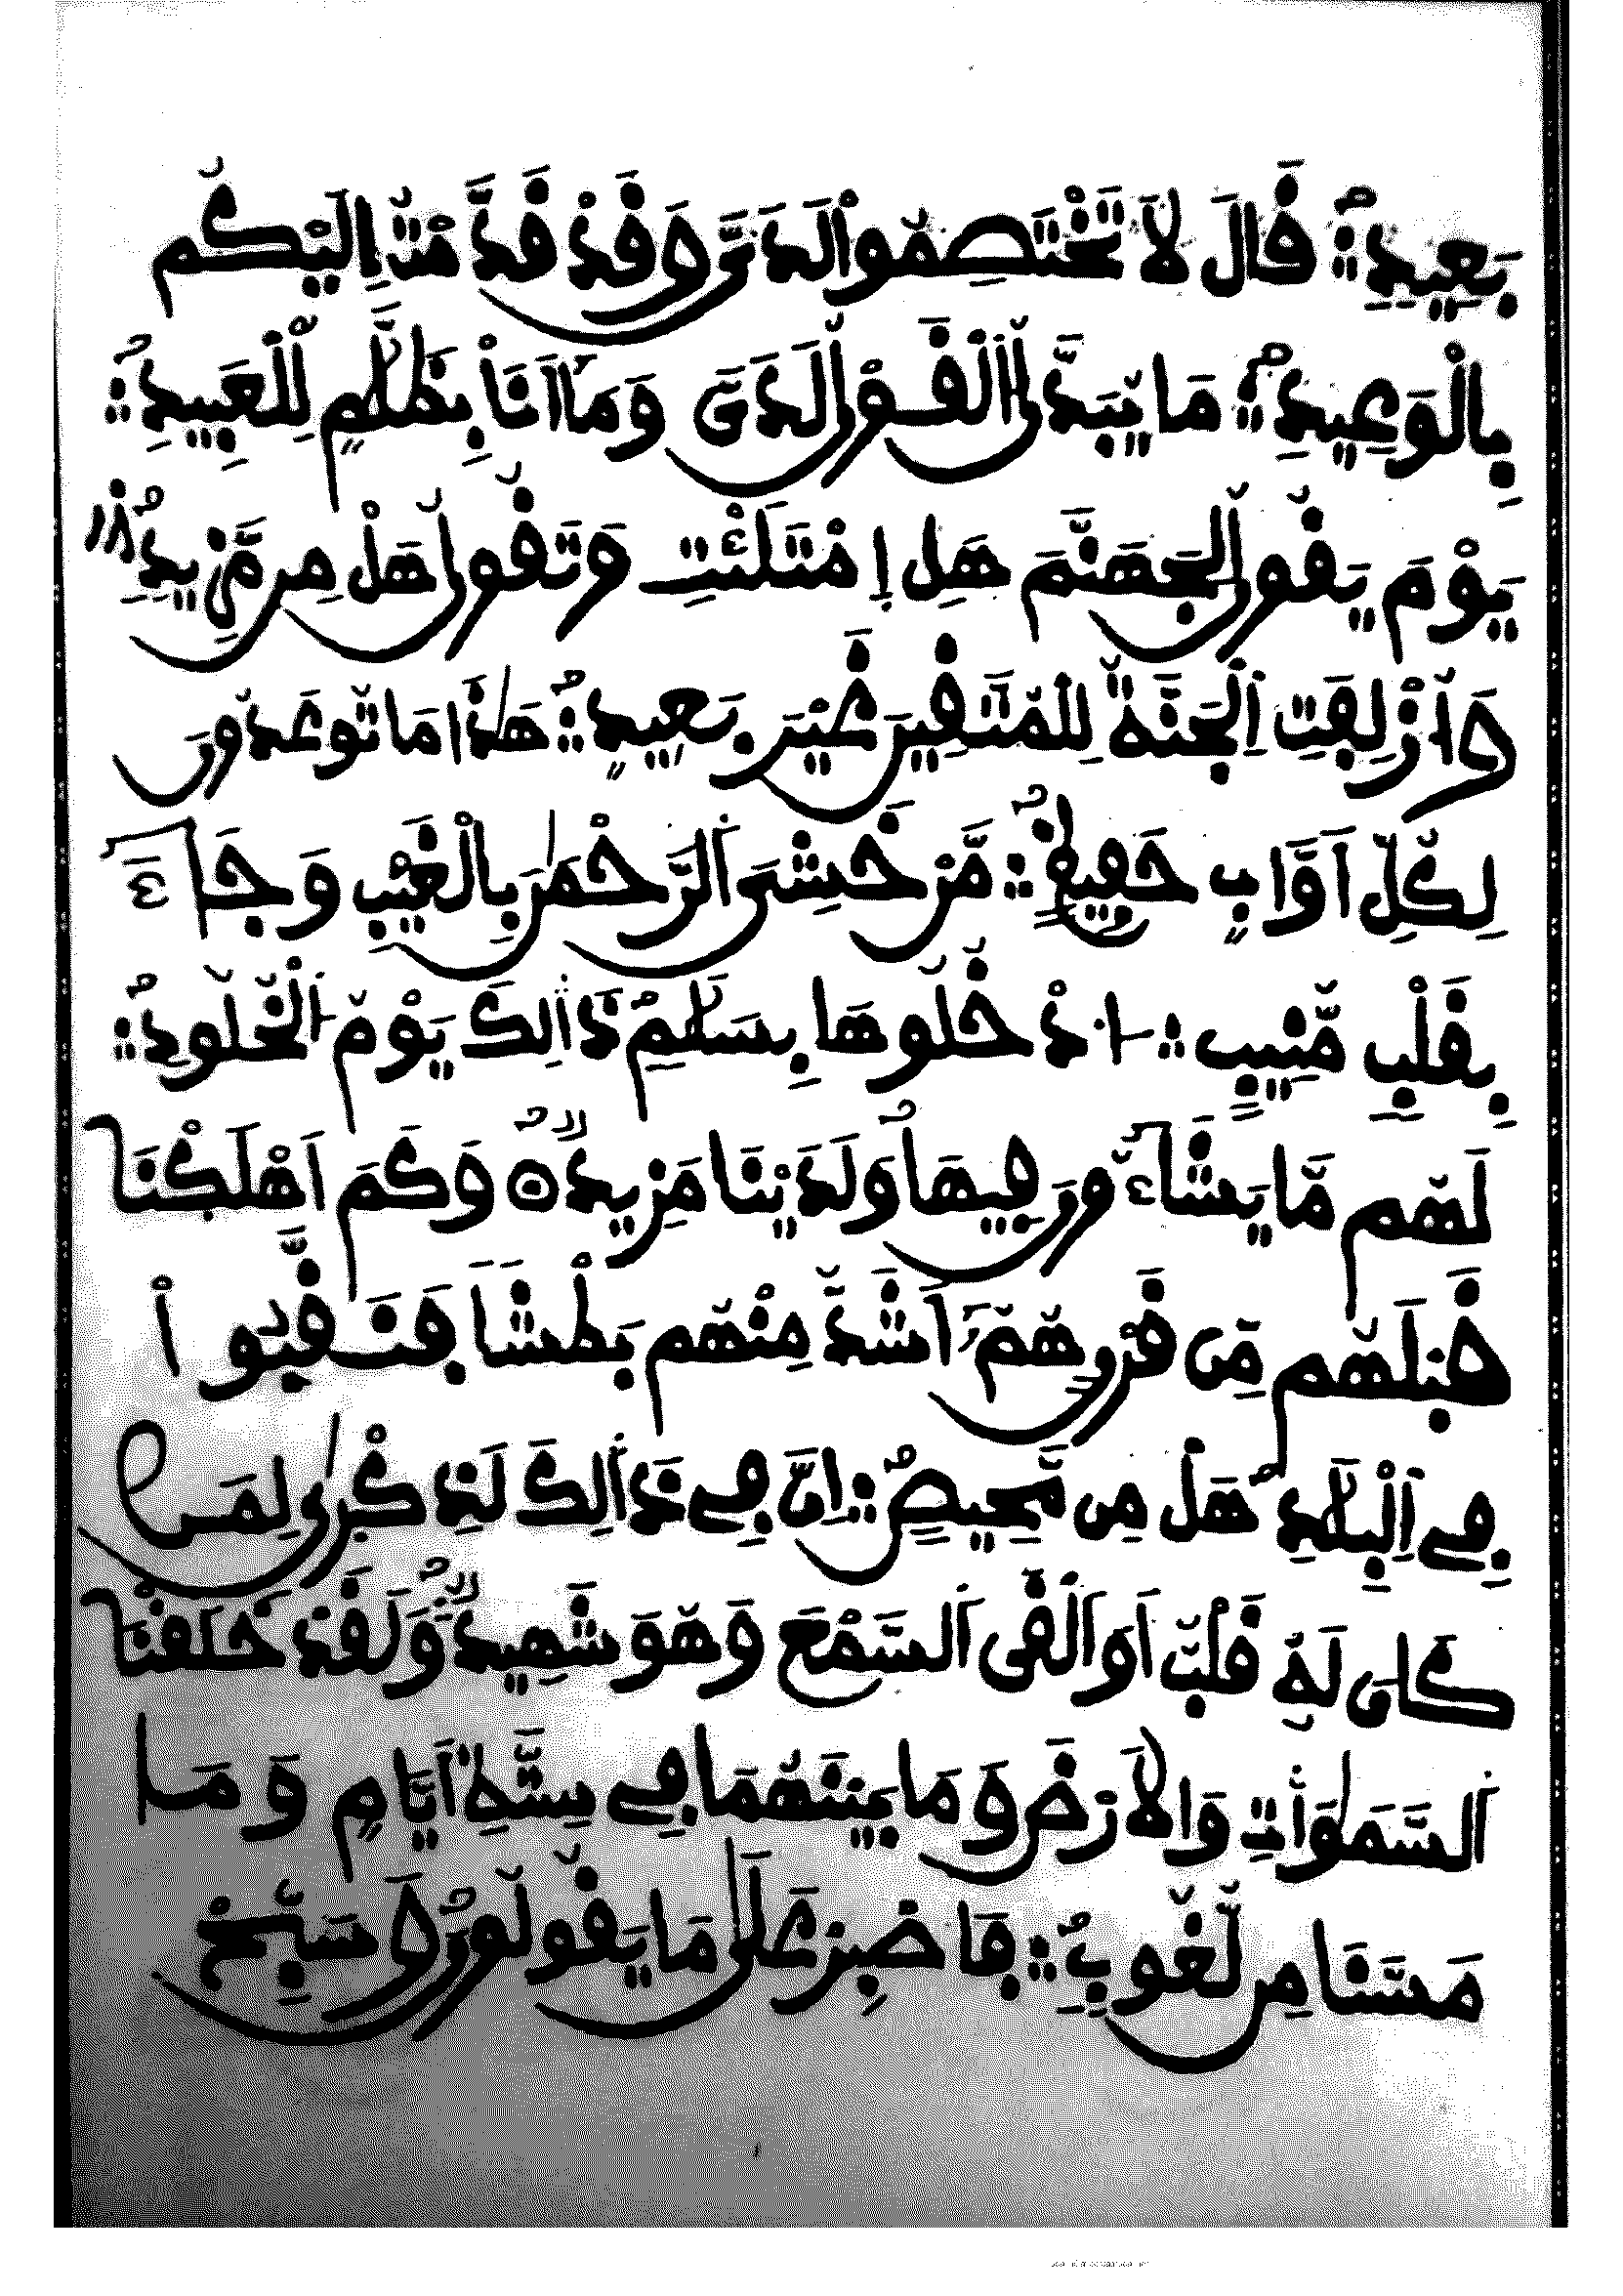 بَعِيدٍ قَالَ لَا تَخْتَصِمُوا لَدَيَّ وَقَدْ قَدَّمْتُ إِلَيْكُم
بِالْوَعِيدِ مَا يُبَدَّلُ الْقَوْلُ لَدَيَّ وَمَا أَنَا بِظَلَّٰمٍ لِّلْعَبِيدِ
يَوْمَ يَقُولُ لِجَهَنَّمَ هَلِ اِمْتَلَأْتِ وَتَقُولُ هَلْ مِن مَّزِيدٍ
وَأُزْلِفَتِ الْجَنَّةُ لِلْمُتَّقِينَ غَيْرَ بَعِيدٍ هَٰذَا مَا تُوعَدُونَ
لِكُلِّ أَوَّابٍ حَفِيظٍ مَّنْ خَشِيَ الرَّحْمَٰنَ بِالْغَيْبِ وَجَاءَ
بِقَلْبٍ مُّنِيبٍ ادْخُلُوهَا بِسَلَٰمٍ ذَالِكَ يَوْمُ الْخُلُودِ
لَهُم مَّا يَشَاءُونَ فِيهَا وَلَدَيْنَا مَزِيدٌ وَكَمْ أَهْلَكْنَا
قَبْلَهُم مِّن قَرْنٍ هُمْ أَشَدُّ مِنْهُم بَطْشًا فَنَقَّبُوا
فِي الْبِلَٰدِ هَلْ مِن مَّحِيصٍ إِنَّ فِي ذَالِكَ لَذِكْرَىٰ لِمَن
كَانَ لَهُ قَلْبٌ أَوْ أَلْقَى السَّمْعَ وَهُوَ شَهِيدٌ وَلَقَدْ خَلَقْنَا
السَّمَٰوَاتِ وَالْأَرْضَ وَمَا بَيْنَهُمَا فِي سِتَّةِ أَيَّامٍ وَمَا
مَسَّنَا مِن لُّغُوبٍ فَاصْبِرْ عَلَىٰ مَا يَقُولُونَ وَسَبِّحْ